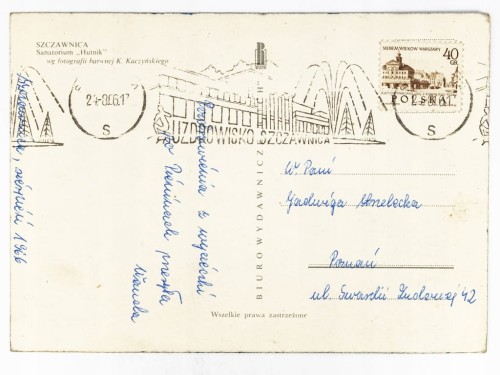 SZCZAWNICA
Sanatorium „Hutnik"
wg fotografii barwnej K. Kaczyńskiego
SIEDEM WIEKÓW WARSZAWY
40
GR
POLSKA
UZDROWISKO SZCZAWNICA
S
S
Szczawnica, sierpień 1966
Pozdrowienia z wycieczki
po Pieninach przesyła
Wanda
BIURO WYDAWNICZE RUCH
W Pani
Jadwiga Strzelecka
Poznań
ul. Gwardii Ludowej 42
Wszelkie prawa zastrzeżone